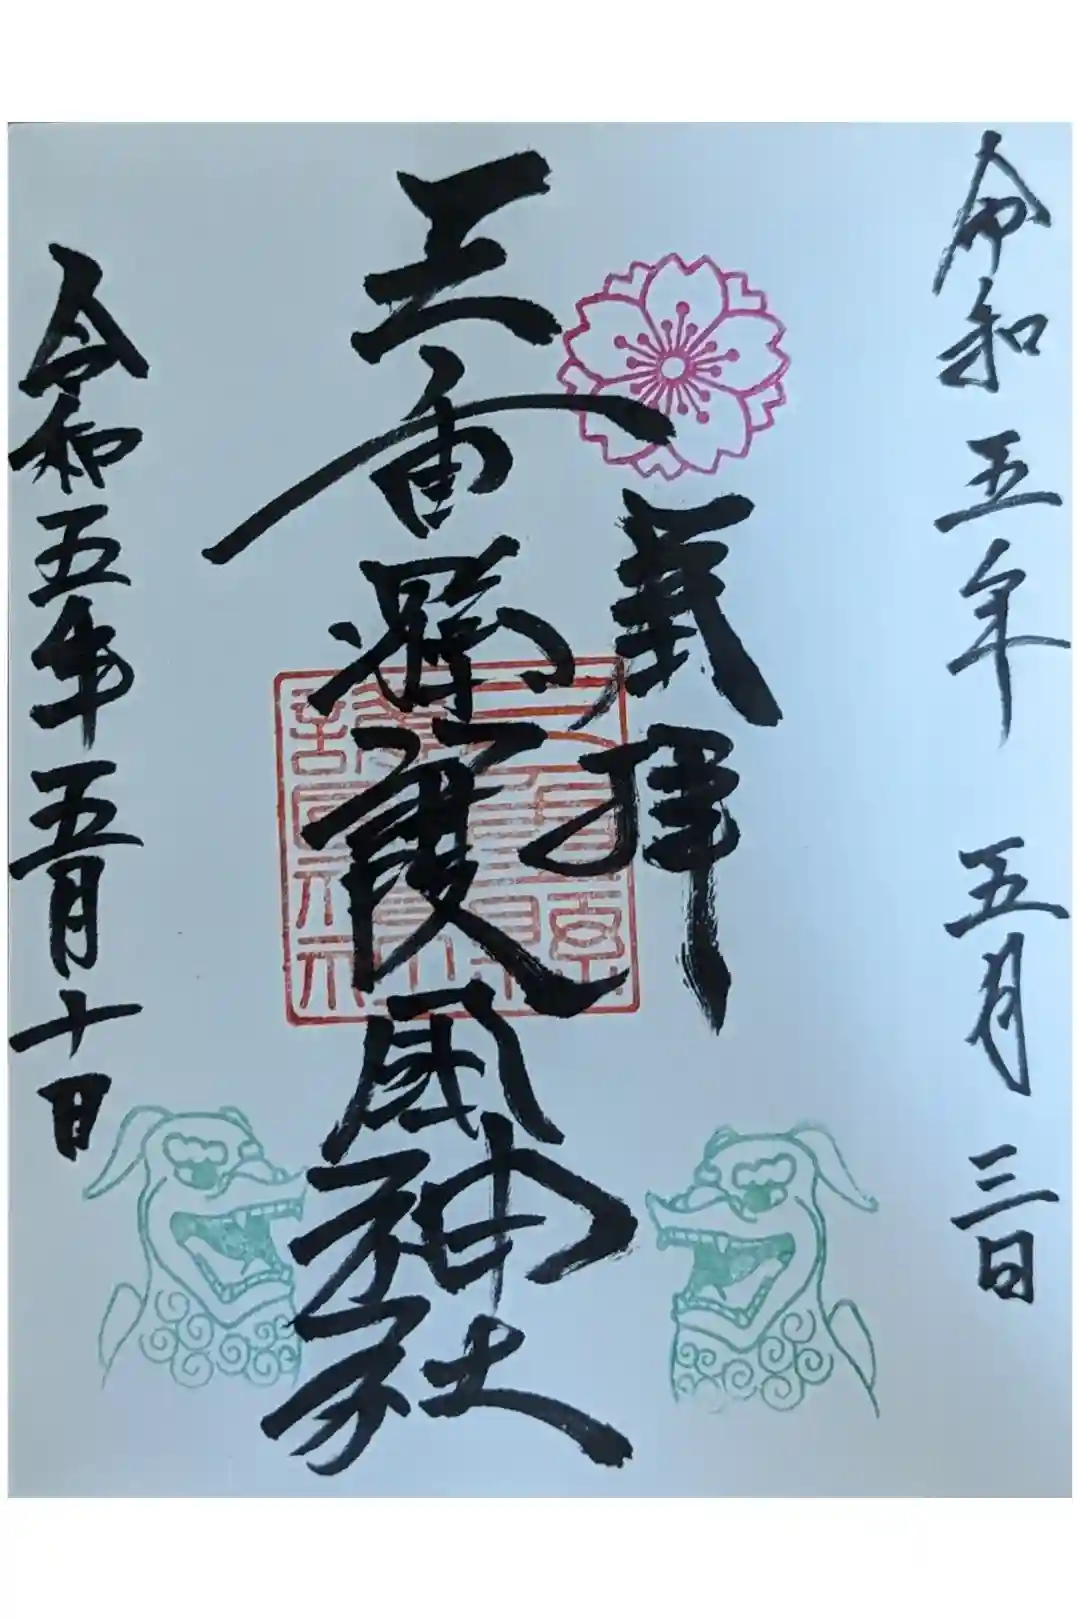 令和五年 五月 三日
奉拝
三重縣護國神社
令和五年五月十日